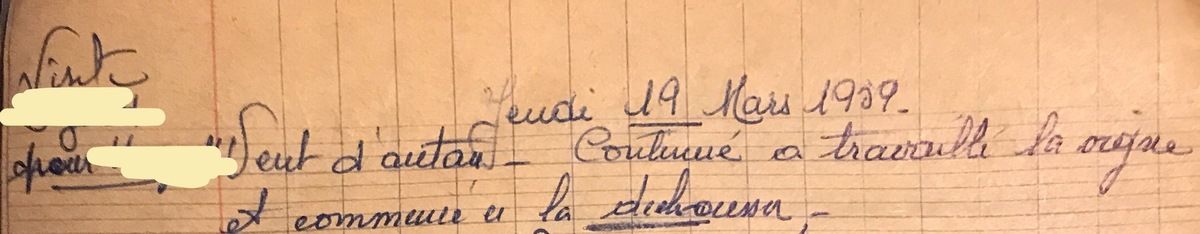 Visite
Jeudi 19 Mars 1959.
pour Vent d'autan - Continué a travaillé la vigne
et commencé a la dechausser -